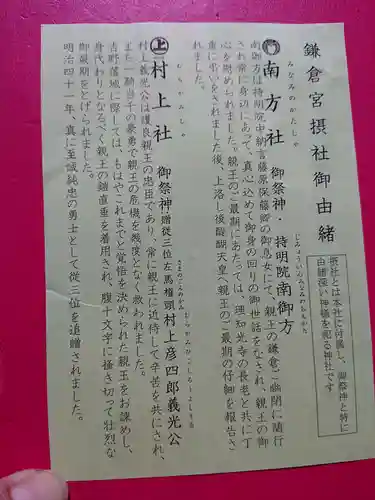 鎌倉宮摂社御由緒
摂社とは本社に付属し、御祭神と特に
由緒深い神様を祀る神社です
みなみのかたしゃ
南方社 御祭神・持明院南御方
じみょういんみなみのおんかた
南御方は持明院中納言藤原保藤卿の御息女にて、親王の鎌倉ご幽閉に随行
され常に身辺にあって、真心込めて御身の回りの御世話をなされ、親王の御
心を慰められました。親王のご最期にあたっては、理知光寺の長老と共に丁
重に弔いをされました後、上洛し後醍醐天皇へ親王のご最期の仔細を報告さ
れました。
むらかみしゃ
上 村上社 御祭神贈従三位左馬権頭村上彦四郎義光公
さまのごんのかみむらかみひこしろうよしてる
村上義光公は護良親王の忠臣であり、常に親王に近侍して辛苦を共にされ、
また一騎当千の豪勇で親王の危機を幾度となく救われました。
吉野落城に際しては、もはやこれまでと覚悟を決められた親王をお諌めし、
身代わりとなるべく親王の鎧直垂を着用され、腹十文字に掻き切って壮烈な
御最期をとげられました。
明治四十一年、真に至誠純忠の勇士として従三位を追贈されました。